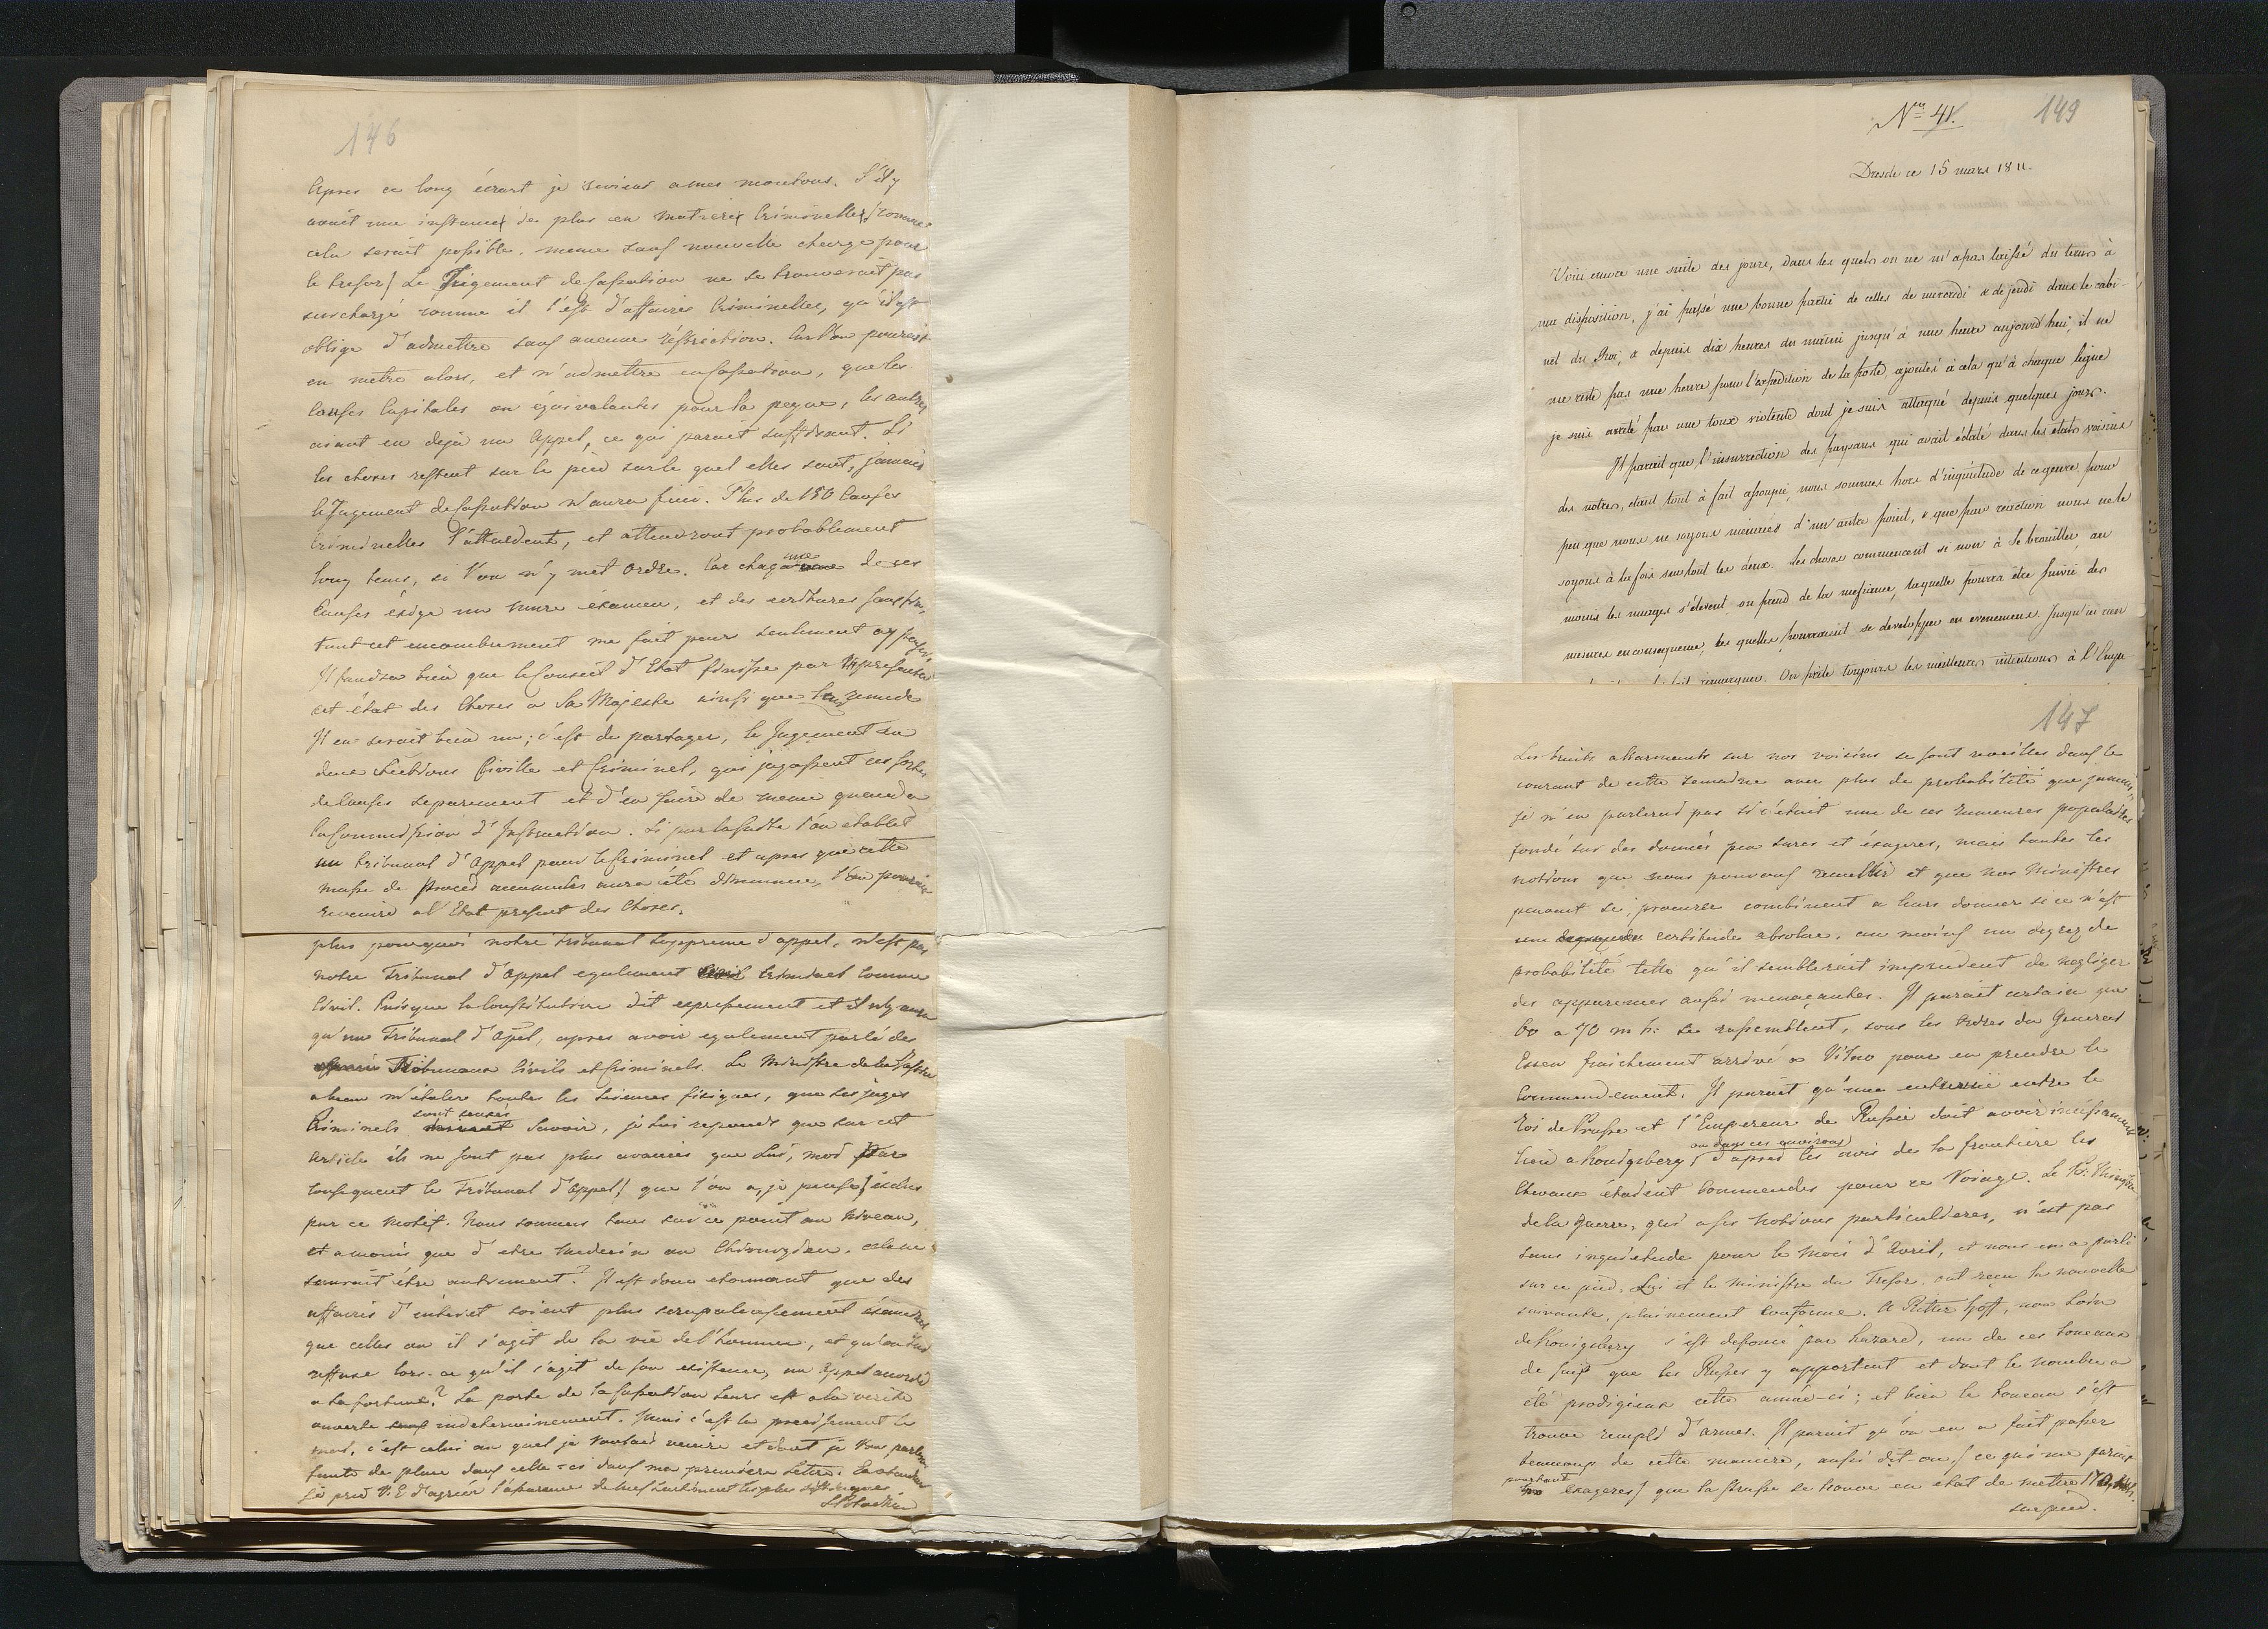 146
Apres ce long écart je reviens a mes moutons. S'il y
avait une instance de plus en matiere Criminelles / comme
cela serait possible, meme sans nouvelle charge pour
le tresor / Le Jugement de Cassation ne se trouverait pas
surchargé comme il l'est d'affaires Criminelles, qu'il est
obligé d'admettre sans aucune réstriction. Car l'on pourait
en metre alors, et n'admettre en Cassation, que les
Causes Capitales ou équivalantes pour la peyne, les autres
aiant eu dejà un Appel, ce qui parait suffisant. Si
les choses restent sur le pied sur le quel elles sont, jamais
le Jugement de Cassation n'aura fini. Plus de 150 Causes
Criminelles l'attendent, et attendront probablement
long tems, si l'on n'y met ordre. Car chaqune de ces
Causes éxige un mure éxamen, et des ecritures sans fin,
tout cet encombrement me fait peur seulement a y penser,
Il faudra bien que le Conseil d'Etat finisse par représenter
cet état des Choses a Sa Majesté ainsi que le remede
Il en serait bien un; c'est de partager, le Jugement en
deux Sections Civille et Criminel, qui jugassent ces sortes
de Causes separement et d'en faire de meme quand a
la Commission d'Instruction. Si par la suite l'on etablit
un tribunal d'Appel pour le Criminel et apres que cette
masse de procès accumulés aura été diminuée, l'on pourra
revenire a l'Etat present des Choses.
plus pourquoi notre tribunal suppreme d'appel, n'est pas
notre Tribunal d'Appel egalement Criminel comme
Civil. Puisque la Constitution dit expressement et il n'y aura
qu'un Tribunal d'Apel, apres avoir egalement parlé des
Tribunaux Civils et Criminels. Le Ministre de la Justice
a beau m'étaler toutes les siences fisiques, que les juges
Criminels sont censés savoir, je lui reponds que sur cet
article ils ne sont pas plus avancés que Lui, moi par
consequent le Tribunal d'Appel / que l'on a, je pense / exclus
par ce motif. Nous sommes tous sur ce point au niveau,
et a moins que d'etre medecin ou Chirurgien, cela ne
sauroit être autrement? Il est donc etonnant que des
affaires d'interet soient plus scrupuleusement éxaminées
que celles ou il s'agit de la vie de l'homme, et qu'on lui
refuse lors-ce qu'il s'agit de son existence, un Appel accordé
a la fortune? La porte de la Cassation leurs est a la verité
ouverte indeterminement. Mais c'est la precisement le
mal, c'est celui au quel je voulais venire et dont je Vous parlerai
faute de place dans celle-ci dans ma premiere Lettre. En attendant
je prie V. E. d'agréer l'assurance de mes sentiments les plus distingués
St. Potocki
Nro 41.
149
Dresde ce 15 mars 1811.
Voici encore une suite des jours, dans les quels on ne m'a pas laissé du tems à
ma disposition, j'ai passé une bonne partie de celles de mercredi & de jeudi dans le cabi-
net du Roi; & depuis dix heures du matin jusqu'à une heure aujourd'hui, il ne
me reste pas une heure pour l'expédition de la poste, ajoutés à cela qu'à chaque ligne
je suis arrêté par une toux violente dont je suis attaqué depuis quelques jours.
Il parait que l'insurrection des paysans qui avait éclaté dans les états voisins
des notres, étant tout à fait assoupie, nous sommes hors d'inquiétude de ce genre pour
peu que nous ne soyons menacés d'un autre point, & que par reaction nous ne le
soyons à la fois sur tout les deux. Les choses commencent si non à se brouiller, au
moins les nuages s'élevent on prend de la mefiance, laquelle pourra être suivie des
mesures en consequence, les quelles pourraient se developper en evenemens. Jusqu'ici rien
remarquer. On prête toujours les meilleures intentions à l'Empe-
147
Les bruits allarments sur nos voisins se sont reveillés dans le
courant de cette semaine avec plus de probabilité que jamais,
je n'en parlerai pas si c'etait une de ces rumeures populaires
fondé sur des donnés peu sures et éxagerés, mais toutes les
notions que nous pouvons recueillir et que nos Ministres
peuvent se procurer combinent a leurs donner si ce n'est
une certitude absolue, au moins un degrez de
probabilité telle qu'il semblerait imprudent de negliger
des apparences aussi menaçantes. Il parait certain que
60 a 70 m h: se rassemblent, sous les Ordres du General
Essen fraichement arrivé a Vilno pour en prendre le
Commandement. Il parait qu'une entrevüe entre le
Roi de Prusse et l'Empereur de Russie doit avoir incessament
lieu a Konigsberg / ou dans ces environs / d'apres les avis de la frontiere les
Chevaux étaient commendés pour ce Voiage. Le Pce Ministre
de la Guerre, qui a ses notions particulieres, n'est pas
sans inquietude pour le mois d'Avril, et nous en a parlé
sur ce pied. Lui et le Ministre du Tresor, ont reçu la nouvelle
suivante, pleinement conforme. A Ritter Hoff, non loin
de Konigsberg s'est defoncé par hazard, un de ces toneaux
de suif que les Russes y apportent et dont le nombre a
été prodigieux cette année-ci; et bien le toneau s'est
trouvé rempli d'armes. Il parait qu'on en a fait passer
beaucoup de cette maniere, aussi dit-on / ce qui me parait
pourtant exageres / que la Prusse se trouve en état de mettre
sur pied.